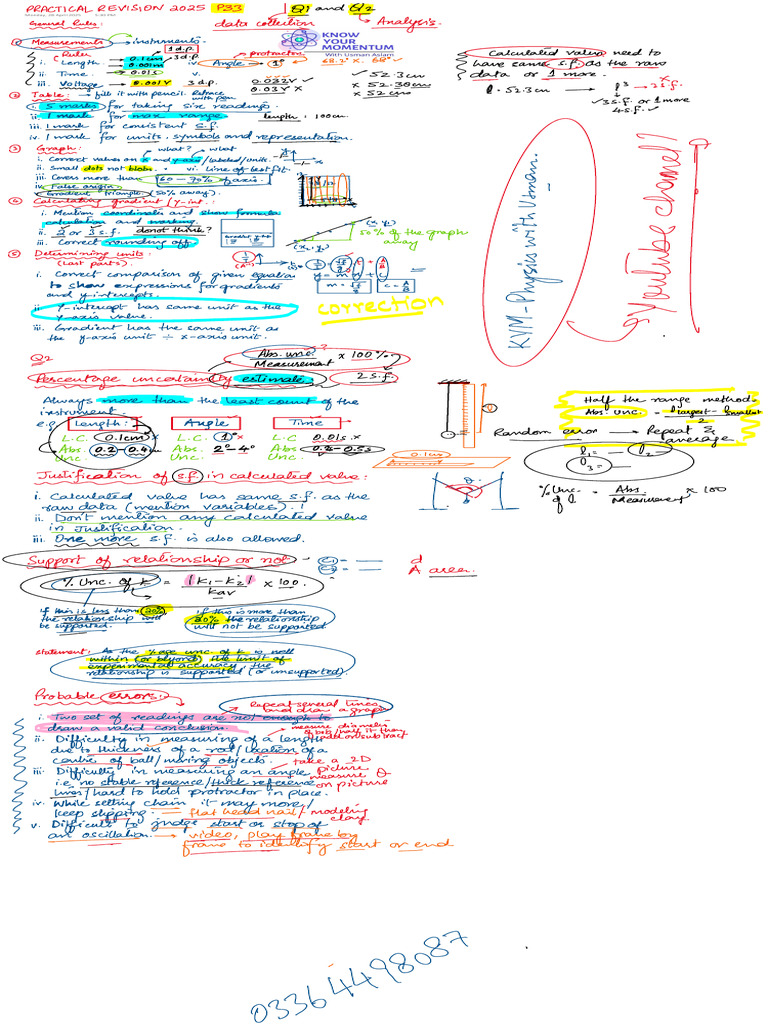 PRACTICAL REVISION 2025 P33 Q1 and Q2
Monday, 28 April 2025
General Rules:
data collection Analysis.
KNOW YOUR MOMENTUM
With Usman Aslam
1 Measurements → instruments.
(Ruler 1 d.p.
i. Length → 0.1cm 3 d.p
0.001m
ii. Time. → 0.01s
iii. Voltage → 0.001V 3 d.p.
protractor
Angle → 1° 68.2° x 68° ✓
v.
0.033V ✓
0.03V x
✓ 52.3cm
x 52.30cm
x 52cm
2 Table: → fill it with pencil.
with pen
i. 5 marks for taking six readings.
ii. 1 mark for max range length: 100cm
iii. 1 mark for consistent s.f.
iv. 1 mark for units, symbols and representation.
3 Graph: what? what
i. Correct values on x and y-axis/labeled/units.
ii. Small dots not blobs. vi. Line of best fit
iii. Covers more than 60 - 70% of axis.
iv. False origin
Gradient triangle (50% away).
4 Calculating gradient / y-int.:
i. Mention coordinates and show formula
calculation and working.
ii. 2 or 3 s.f. donot think?
iii. Correct rounding off
(x, y,)
(x, y,)
50% of the graph
away
5 Determining units:
(Last parts).
i. Correct comparison of given equation
to show expressions for gradients
and y-intercepts.
y = mx + c
ii. Y-intercept has same unit as the
y-axis value.
correction
iii. Gradient has the same unit as
the y-axis unit ÷ x-axis unit.
Calculated values need to
have same s.f. as the raw
data or 1 more.
l. 52.3cm l³ → 2 s.f. x
✓ 3 s.f. or 1 more
4 s.f. ✓
KYM-Physics with Usman.
YouTube channel
Q2
Abs. unc. ? x 100%.
Measurement
Percentage uncertainty estimate: 2 s.f.
Always more than the least count of the
instrument
e.g. Length: Angle Time
L.C. 0.1cm x L.C. 1° x L.C. 0.01s. x
Abs. 0.2-0.4cm Abs. 2°-4° Abs. 0.2-0.5s
Unc. Unc. Unc.
0.1cm
Half the range method.
Abs. Unc. = largest - smallest
2
Random error → Repeat &
average
l₁ = l₂ =
l₃ =
% Unc. = Abs. x 100
of l Measurement
Justification of s.f. in calculated value:
i. Calculated value has same s.f. as the
raw data (mention variables). !
ii. Don't mention any calculated value
in justification.
iii. One more s.f. is also allowed.
Support of relationship or not
d
A area.
% Unc. of k = |k₁-k₂| x 100.
kav
if this is less than 20%
the relationship will
be supported.
if this is more than
20% the relationship
will not be supported
statement: As the %age unc. of k is well
within (or beyond) the limit of
experimental accuracy, the
relationship is supported (or unsupported).
Probable errors:
repeat several times
and draw a graph
i. Two set of readings are not enough to
draw a valid conclusion.
ii. Difficulty in measuring of a length
due to thickness of a rod/location of a
centre of ball/moving objects.
measure diameter
of bob/half it then
add or subtract
iii. Difficulty in measuring an angle
i.e. no stable reference/thick reference
lines/hard to hold protractor in place.
take a 2D
picture
measure θ
on picture
iv. While setting chain it may move/
keep slipping. = flat head nail/- modeling
clay.
v. Difficult to judge start or stop of
an oscillation. → video, play frame by
frame to identify start or end
03364498087